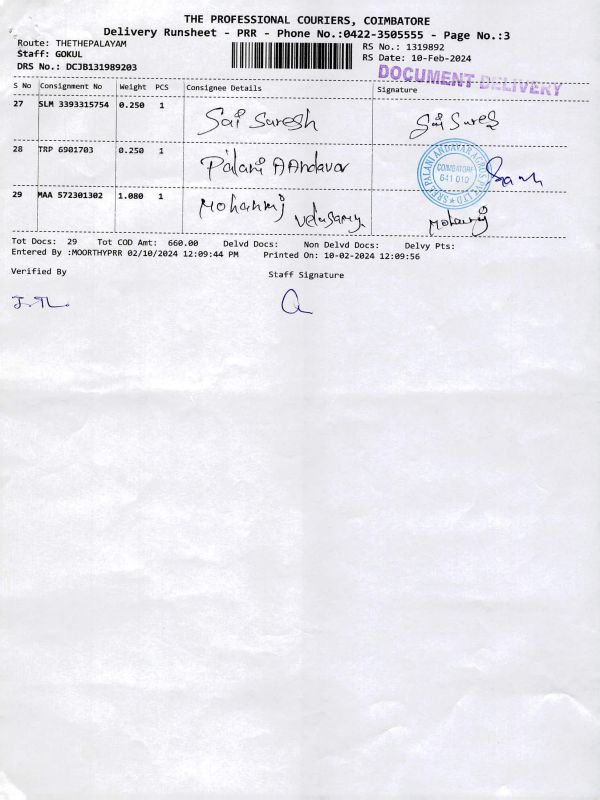 THE PROFESSIONAL COURIERS, COIMBATORE
Delivery Runsheet - PRR - Phone No.:0422-3505555 - Page No.:3
Route: THETHEPALAYAM
RS No.: 1319892
Staff: GOKUL
RS Date: 10-Feb-2024
DRS No.: DCJB131989203
DOCUMENT DELIVERY
S No Consignment No Weight PCS Consignee Details Signature
27 SLM 3393315754 0.250 1 Sai Suresh Sai Sures
28 TRP 6901703 0.250 1 Palani AAndavar
SREE PALANI ANDAVAR AGROS PVT LTD
COIMBATORE
641 010
29 MAA 572301302 1.080 1 Mohanraj Velusamy Mohanraj
Tot Docs: 29 Tot COD Amt: 660.00 Delvd Docs: Non Delvd Docs: Delvy Pts:
Entered By :MOORTHYPRR 02/10/2024 12:09:44 PM Printed On: 10-02-2024 12:09:56
Verified By
Staff Signature